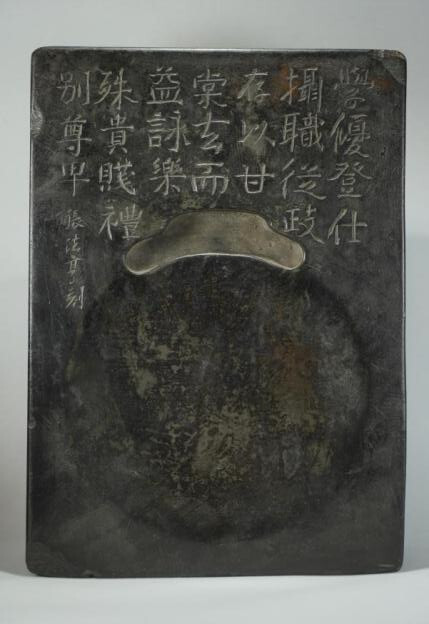 學優登仕
攝職從政
存以甘
棠去而
益詠樂
殊貴賤禮
別尊卑
張法亭刻